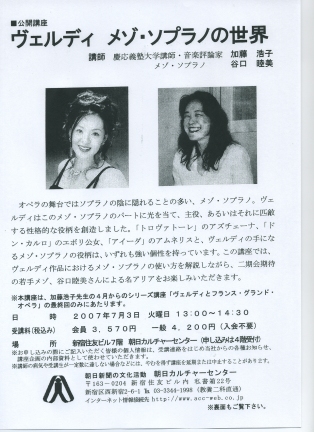 ■公開講座
ヴェルディ メゾ・ソプラノの世界
講師 慶応義塾大学講師・音楽評論家 加藤 浩子
メゾ・ソプラノ 谷口 睦美
オペラの舞台ではソプラノの陰に隠れることの多い、メゾ・ソプラノ。ヴェ
ルディはこのメゾ・ソプラノのパートに光を当て、主役、あるいはそれに匹敵
する性格的な役柄を創造しました。「トロヴァトーレ」のアズチェーナ、「ド
ン・カルロ」のエボリ公女、「アイーダ」のアムネリスと、ヴェルディの手にな
るメゾ・ソプラノの役柄は、いずれも強い個性を持っています。この講座では、
ヴェルディ作品におけるメゾ・ソプラノの使い方を解説しながら、二期会期待
の若手メゾ、谷口睦美さんによる名アリアをお楽しみいただきます。
※本講座は、加藤浩子先生の4月からのシリーズ講座「ヴェルディとフランス・グランド・
オペラ」の最終回のみにあたります。
日 時 2007年7月3日 火曜日 13:00〜14:30
受講料(税込み) 会員 3,570円 一般 4,200円(入会不要)
場 所 新宿住友ビル7階 朝日カルチャーセンター(申し込みは4階受付)
※お申し込みの際にご記入いただく皆様の個人情報は、受講連絡をはじめ当社からの各種お知らせ、
講座企画の内部資料として使わせていただきます。
※講師の病気や受講生が一定数に達しない場合などには、やむを得ず講座を延期または中止することがあります。
朝日新聞の文化活動 朝日カルチャーセンター
〒163-0204 新宿住友ビル内 私書箱22号
新宿区西新宿2-6-1 Tel 03-3344-1998(教養二科直通)
インターネット情報提供先 http://www.acc-web.co.jp
※裏面もご覧下さい。